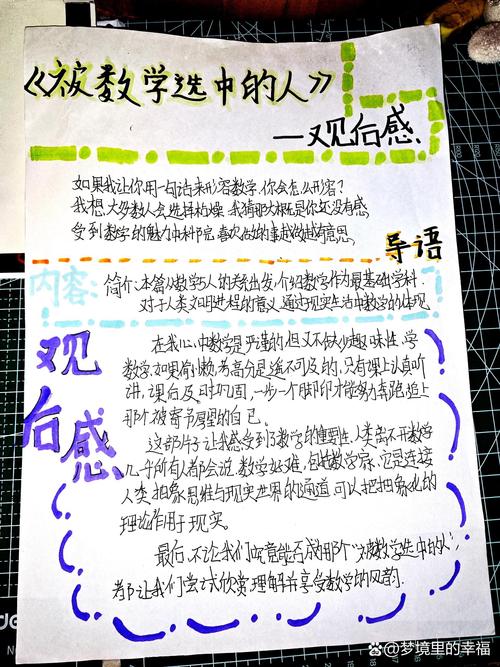 《被数学选中的人》
—观后感
如果我让你用一句话来形容数学,你会怎么形容?
我想,大多数人会选择枯燥,我猜那大概是你还没有感
受到数学的魅力中科院,喜欢做的事越做越有意思。
导语
内容:
简介:本篇从数学与人的关系出发,介绍数学作为最基础学科
对于人类文明进程的意义,通过现实生活中数学的体现。
观后感
在我心中数学是严谨的但又不缺少趣味性,学
数学如果偷懒,考高分是遥不可及的,只有课上认真听
讲,课后及时巩固,一步一个脚印才能努力奔跑追上
那个被寄予厚望的自己。
这部片子让我感受到了数学的重要性,人类离不开数学
几乎所有人都会说,数学好难,包括数学家,它是连接
人类抽象思维与现实世界的通道,可以把抽象化的
理论作用于现实。
最后,不论我们究竟能否成那个“被数学选中的人”,
都让我们尝试欣赏理解并享受数学的风韵.
du
@梦境里的幸福